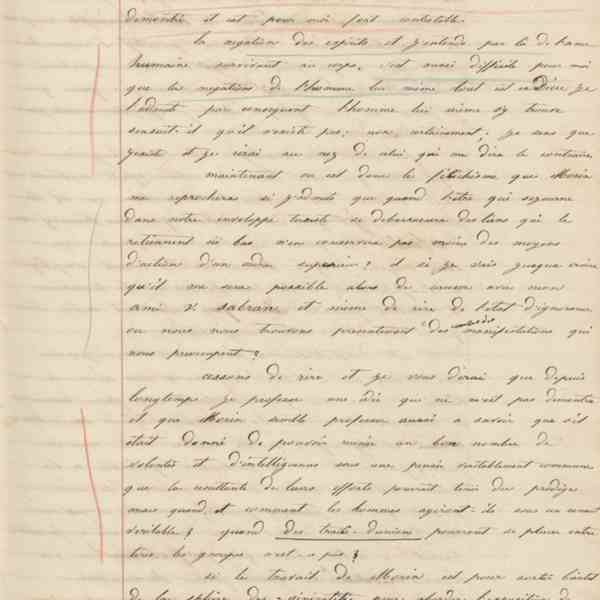 démontré et est pour moi fort contestable.
la négation des esprits et j'entends par là de l'ame
humaine survivant au corps, c'est aussi difficile pour moi
que la négation de l'homme lui même tout est en Dieu je
l'admets par conséquent l'homme lui même s'y trouve
ensuit-il qu'il n'existe pas; non certainement; je sens que
j'existe et je rirai au nez de celui qui me dira le contraire.
maintenant ou est donc le fétichisme que Morin
me reprochera si j'admets que quand l'être qui
dans notre enveloppe terrestre se débarrassera des liens qui le
retiennent ici bas n'en conservera pas moins des moyens
d'action d'un ordre supérieur? et si je vais jusqu'à croire
qu'il me sera possible alors de causer avec mon
ami V. Sabran et même de rire de l'état d'ignorance
ou nous nous trouvons présentement des manifestations qui
nous préoccupent?
cessons de rire et je vous dirai que depuis
longtemps je professe une idée qui ne m'est pas démontrée
et que Morin semble professer aussi a savoir que s'il
était donné de pouvoir réunir un bon nombre de
volontés et d'intelligences sous une pensée véritablement commune
que la résultante de leurs efforts pourrait tenir du prodige
mais quand et comment les hommes agiront-ils sous un
véritable? quand des traits-d'unions pourront se placer entre
tous les groupes n'est-ce pas?
si le travail de Morin est pour
de la sphère des généralités pour aborder